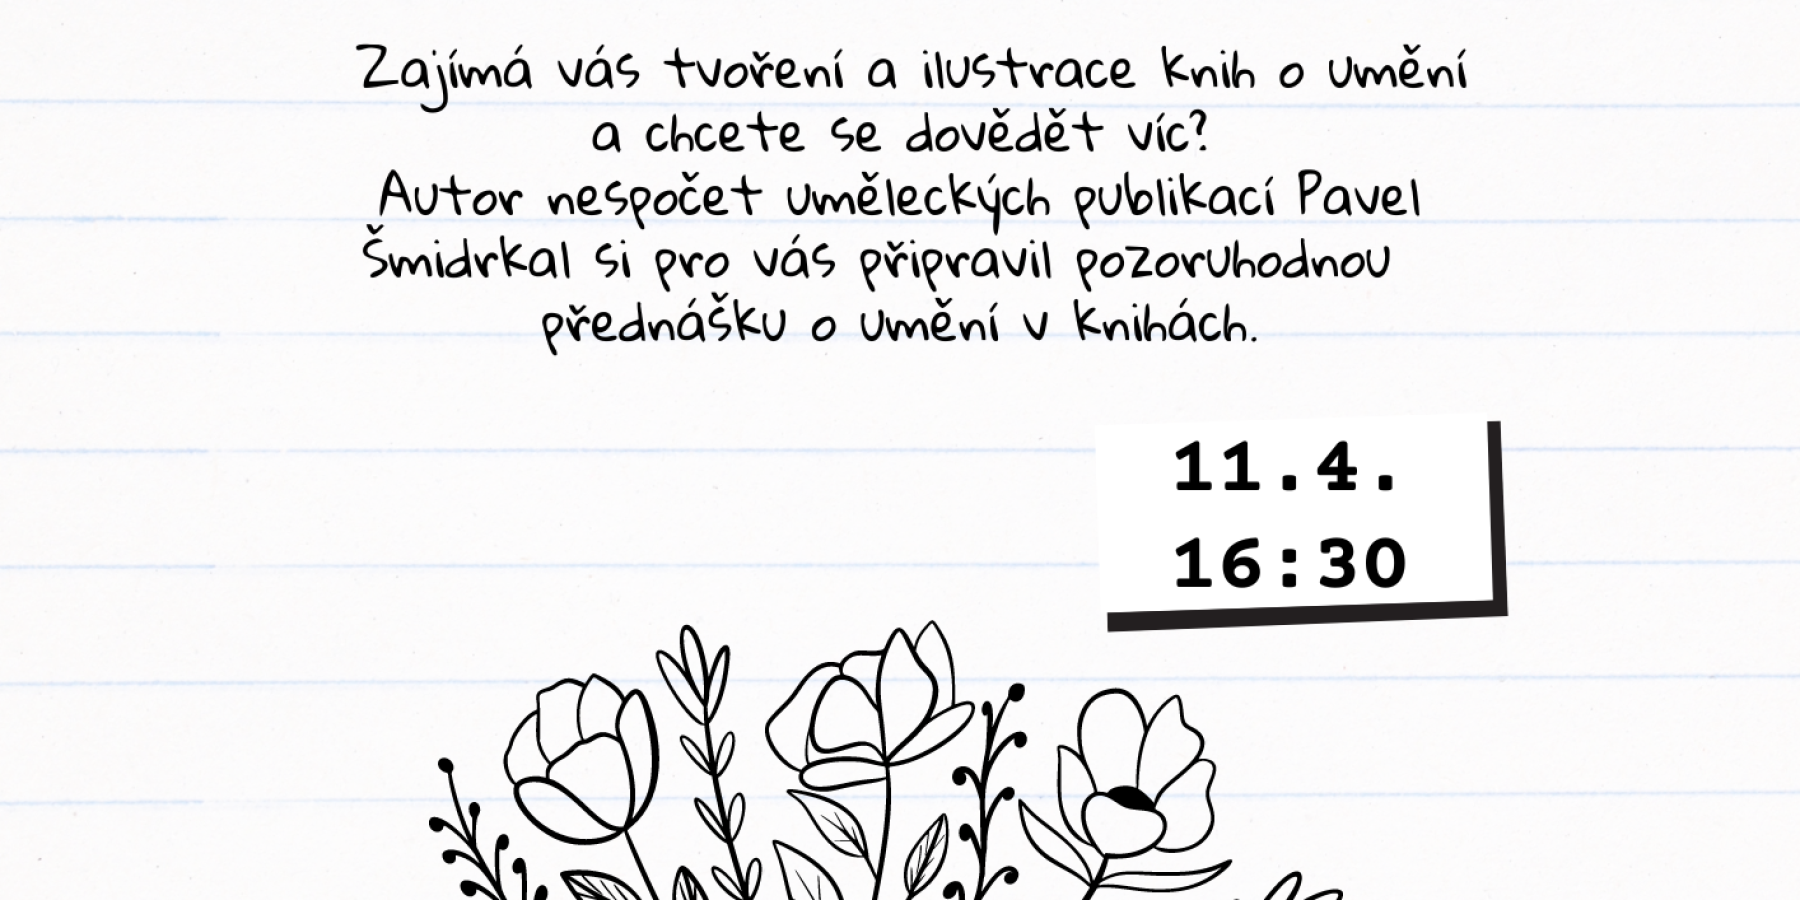 Zajímá vás tvoření a ilustrace knih o umění
a chcete se dovědět víc?
Autor nespočet uměleckých publikací Pavel
Šmidrkal si pro vás připravil pozoruhodnou
přednášku o umění v knihách.
11.4.
16:30